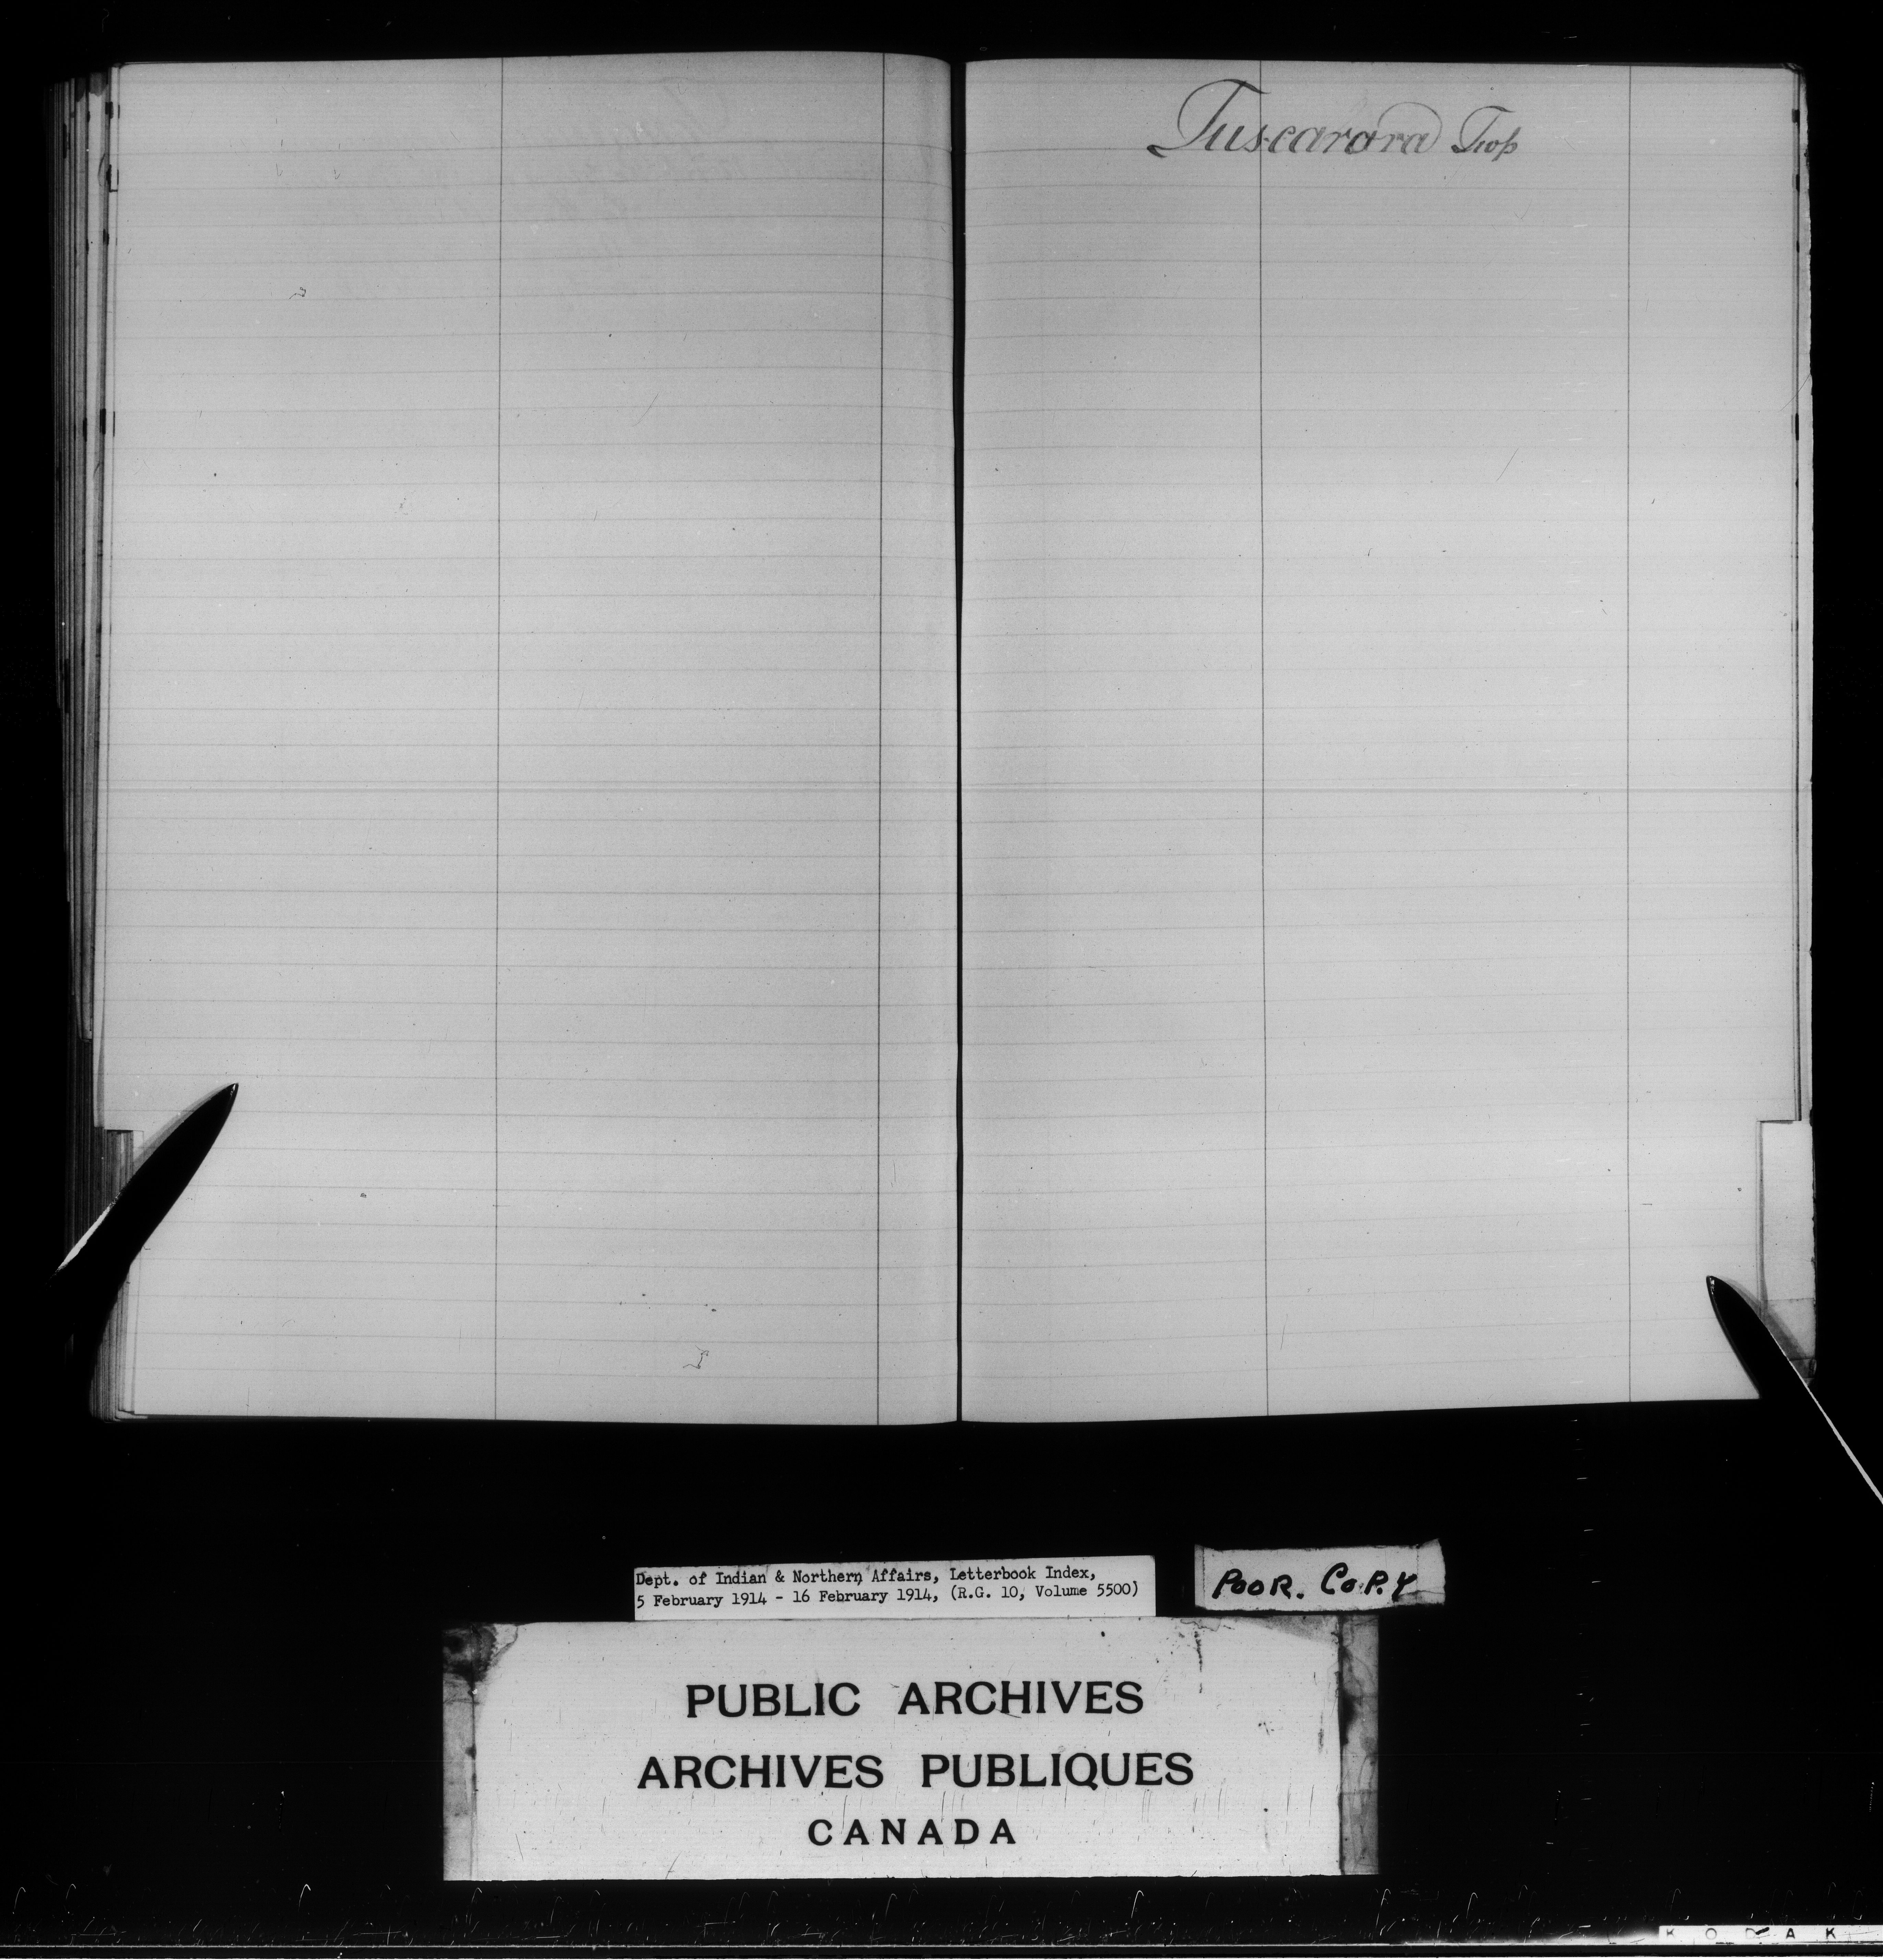 Tuscarora Twp
Dept. of Indian & Northern Affairs, Letterbook Index,
5 February 1914 - 16 February 1914, (R.G. 10, Volume 5500)
POOR. COPY
PUBLIC ARCHIVES
ARCHIVES PUBLIQUES
CANADA
KODAK